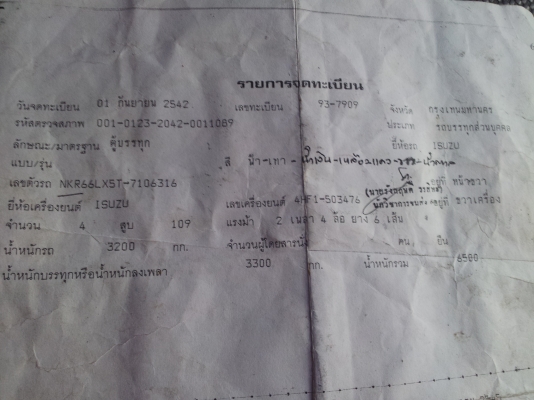 รายการจดทะเบียน
วันจดทะเบียน 01 กันยายน 2542 เลขทะเบียน 93-7909 จังหวัด กรุงเทพมหานคร
รหัสตรวจสภาพ 001-0123-2042-0011089 ประเภท รถบรรทุกส่วนบุคคล
ลักษณะ/มาตรฐาน ตู้บรรทุก ยี่ห้อรถ ISUZU
แบบ/รุ่น สี ฟ้า-เทา-น้ำเงิน-เหลือง
เลขตัวรถ NKR66LX5T-7106316 อยู่ที่ หน้าขวา
ยี่ห้อเครื่องยนต์ ISUZU เลขเครื่องยนต์ 4HF1-503476 นักวิชาการขนส่ง อยู่ที่ ขวาเครื่อง
จำนวน 4 สูบ 109 แรงม้า 2 เพลา 4 ล้อ ยาง 6 เส้น
น้ำหนักรถ 3200 กก. จำนวนผู้โดยสารนั่ง คน ยืน
น้ำหนักบรรทุกหรือน้ำหนักลงเพลา 3300 กก. น้ำหนักรวม 6500